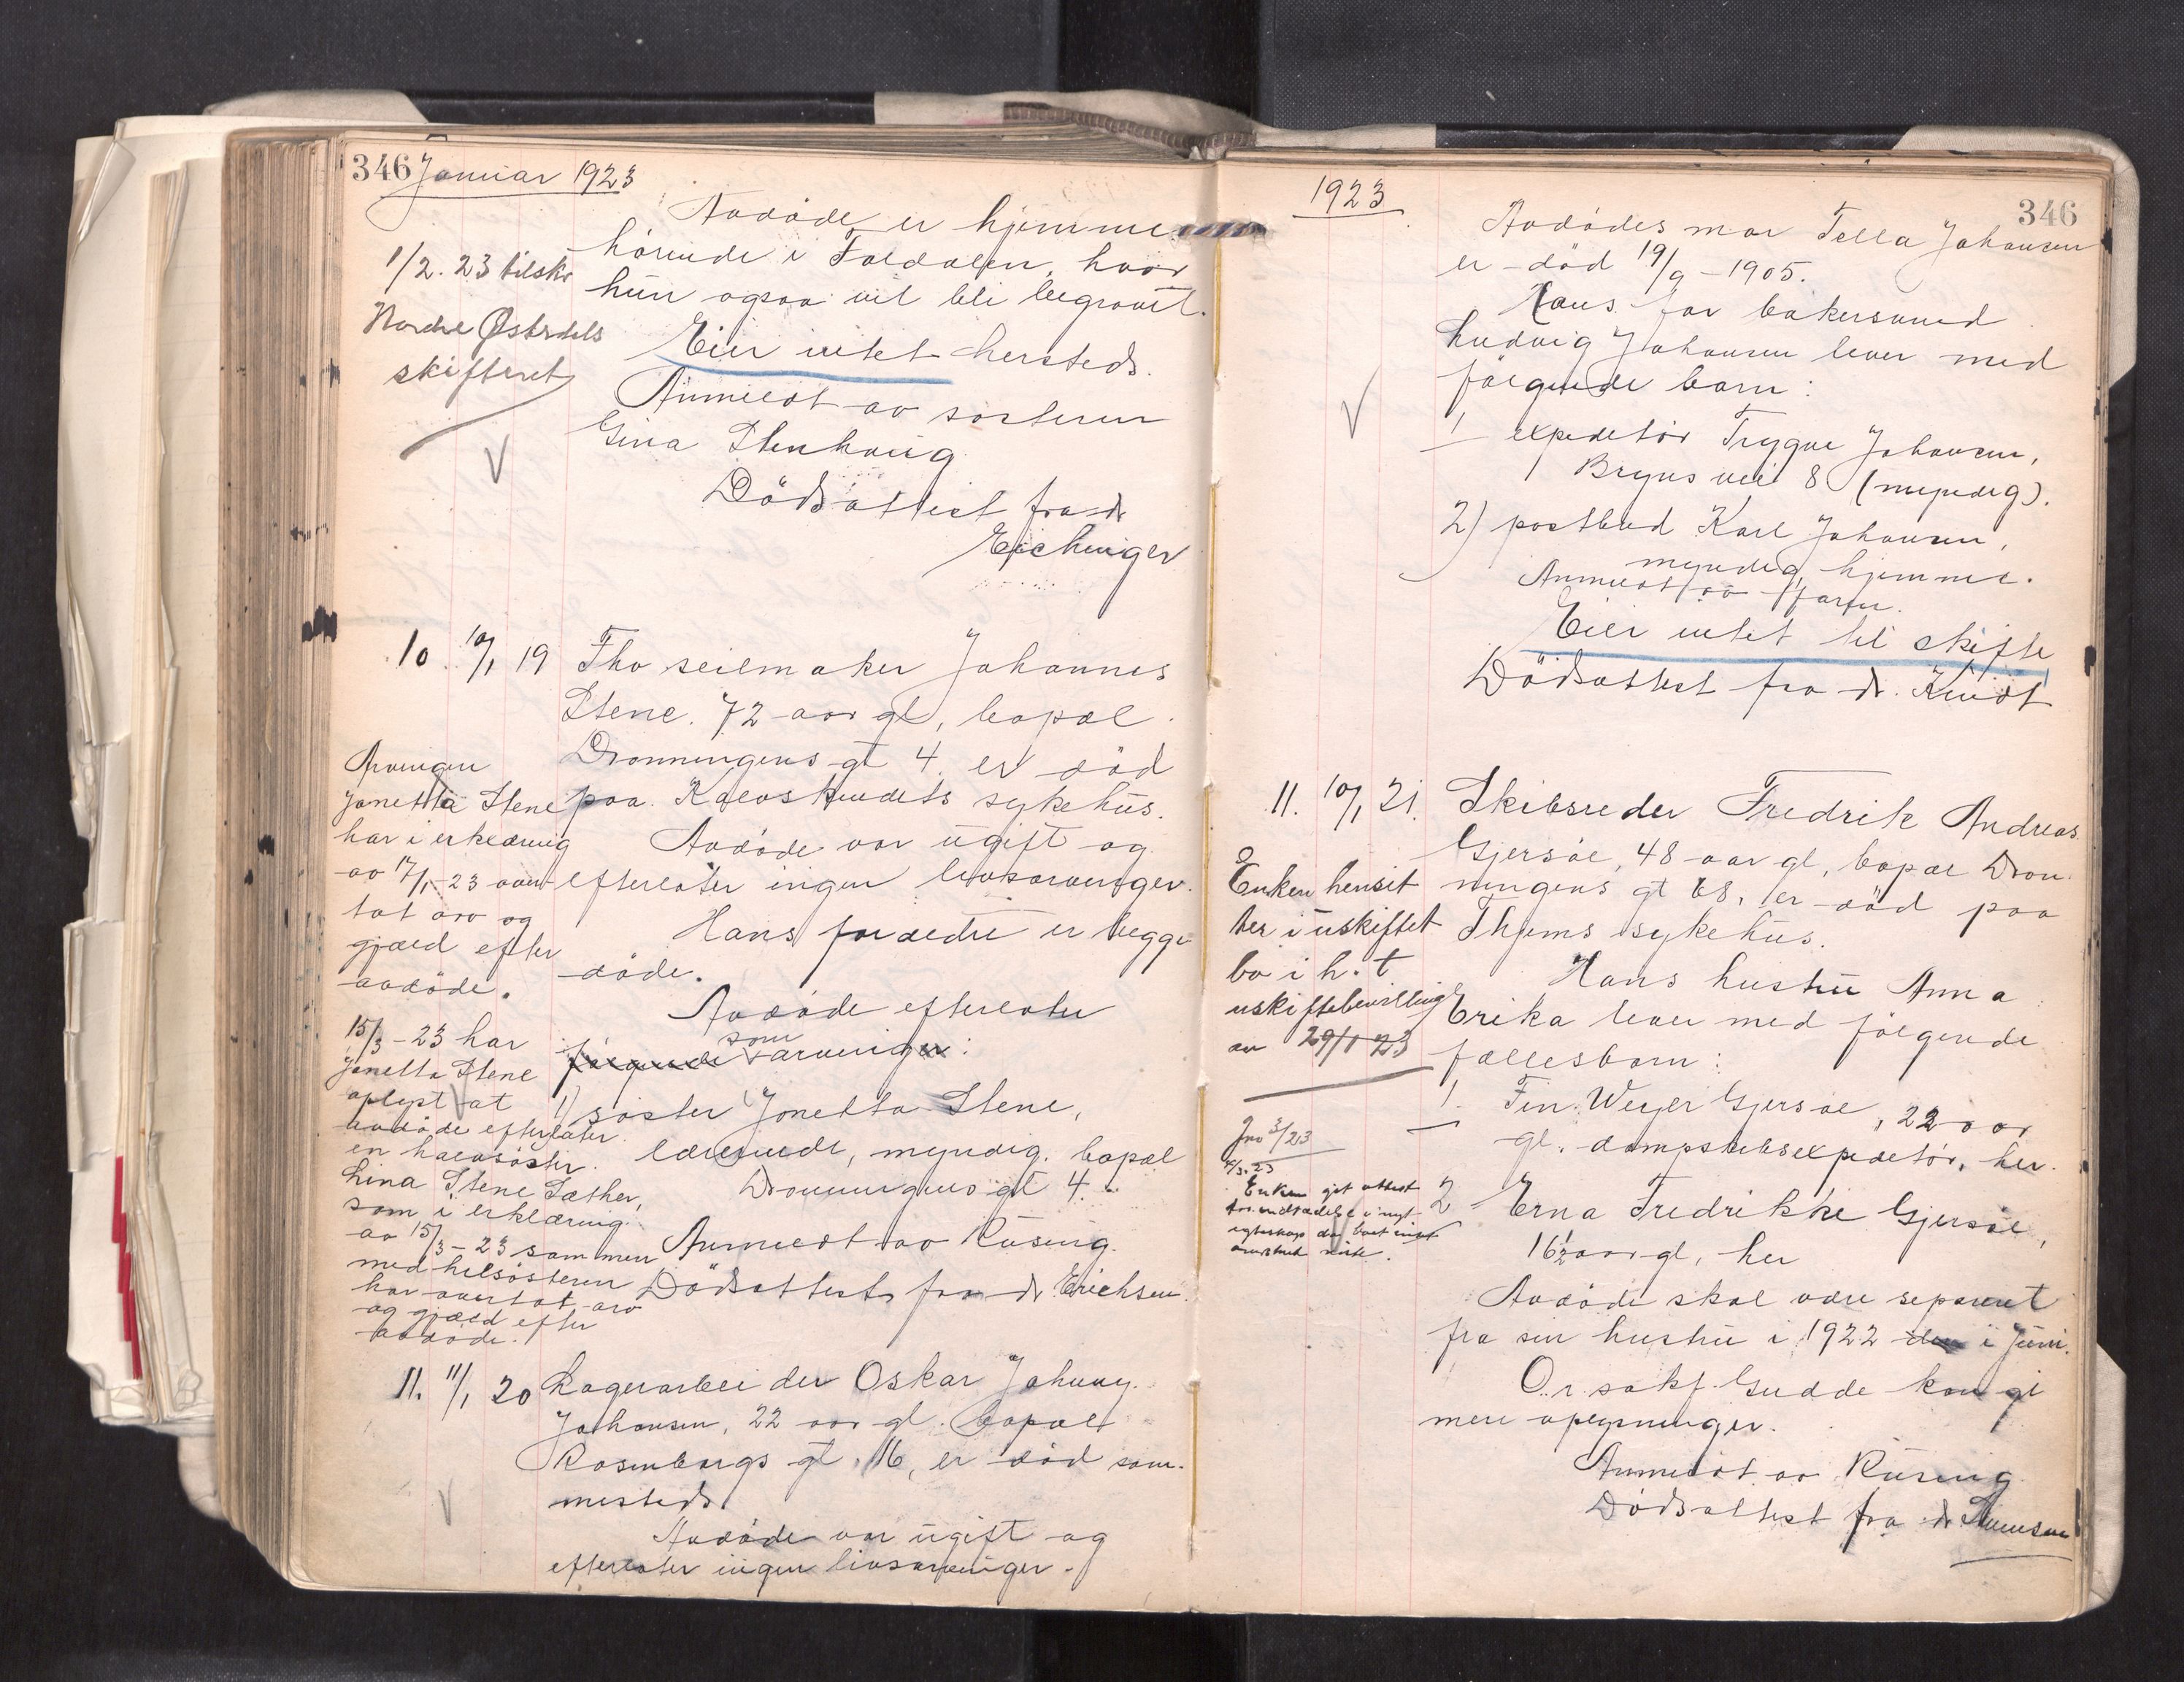 346 Januar 1923
Avdöde er hjemme
hörende i Foldalen, hvor
hun ogsaa vil bli begravet.
Eier intet hersteds.
Anmeldt av sösteren
Gina Stenhaug
Dödsattest fra dr
Eichinger
1/2. 23 tilskr
Nordre Østerdals
skifteret
10. 10/1 19 Fhv seilmaker Johannes
Stene. 72 aar gl, bopæl
Dronningens gt 4. er död
paa Kalvskindets sykehus.
Avdöde var ugift og
efterlater ingen livsarvinger.
Hans forældre er begge
döde.
Avdöde efterlater
følgende som arvinger:
1) söster Jonetta Stene,
lærerinde, myndig. bopæl
Dronningens gt 4.
Anmeldt av Rüsing.
Dödsattest fra dr Erichsen.
Arvingen
Jonetta Stene
har i erklæring
av 17/1-23 over-
tat arv og
gjæld efter
avdöde.
15/3-23 har
Jonetta Stene
oplyst at
avdöde efterlater
en halvsöster.
Lina Stene Sæther,
som i erklæring
av 15/3-23 sammen
med helsösteren
har overtat arv
og gjæld efter
avdöde.
11. 11/1 20 Lagerarbeider Oskar Johnny
Johansen, 22 aar gl. bopæl
Rosenborgs gt. 16, er död sam-
mesteds.
Avdöde var ugift og
efterlater ingen livsarvinger.
1923
346
Avdödes mor Tella Johansen
er död 19/9-1905.
Hans far bakersvend
Ludvig Johansen lever med
følgende barn:
1 expeditör Trygve Johansen,
Bryns vei 8 (myndig).
2) postbud Karl Johansen,
myndig, hjemme.
Anmeldt av faren.
Eier intet til skifte
Dödsattest fra dr. Kindt
11. 10/1 21. Skibsreder Fredrik Andreas
Gjersöe, 48 aar gl, bopæl Dron-
ningens gt 68, er död paa
Thjems sykehus.
Hans hustru Anna
Erika lever med følgende
fællesbarn:
1. Fin Weyer Gjersöe, 22 aar
gl. dampskibsexpeditör, her.
2 Erna Fredrikke Gjersöe,
16½ aar gl, her
Avdöde skal være separert
fra sin hustru i 1922 i juni.
O.r.sakf. Gudde kan gi
mere oplysninger.
Anmeldt av Rüsing
Dödsattest fra dr.
Enken hensit
ter i uskiftet
bo i h. t
uskiftebevilling
av 29/1 23
Jno 3/23
Enken git attest